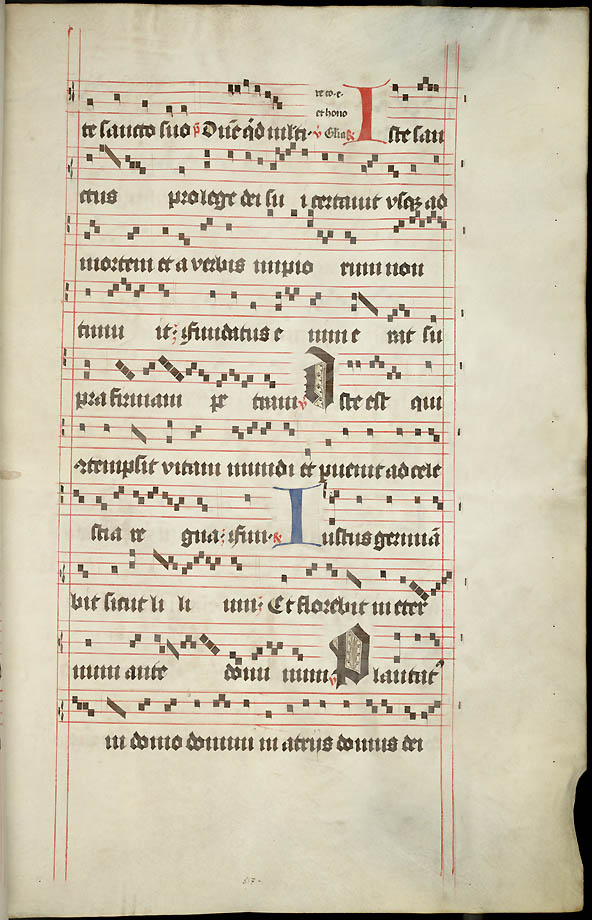 te sancto suo ℣ Dñe q̄d m̄lti ℣ Glīa ℟ Iste san
re co e
et hono
ctus pro lege dei su i certauit vsq; ad
mortem et a verbis impio rum non
timu it; fundatus e nim e rat su
pra firmam pe tram ℣ Iste est qui
9tempsit vitam mundi et puenit ad cele
stia re gna; fun ℟ Iustus germiā
bit sicut li li um; Et florebit in eter
num ante domi num ℣ Plantat9
in domo domini in atrijs domus dei